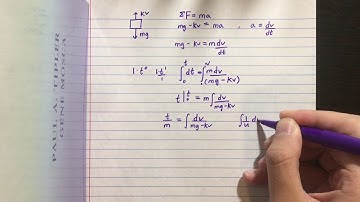 kv
mg
ΣF = ma
mg - kv = ma , a = dv/dt
mg - kv = m dv/dt
1·t° 1·t¹/1 ∫₀ᵗ dt = ∫ᵛ m dv/(mg - kv)
t |₀ᵗ = m ∫ dv/mg-kv
t/m = ∫ dv/mg-kv ∫ 1/u d
PAUL A. TIPLER
GENE MOSCA